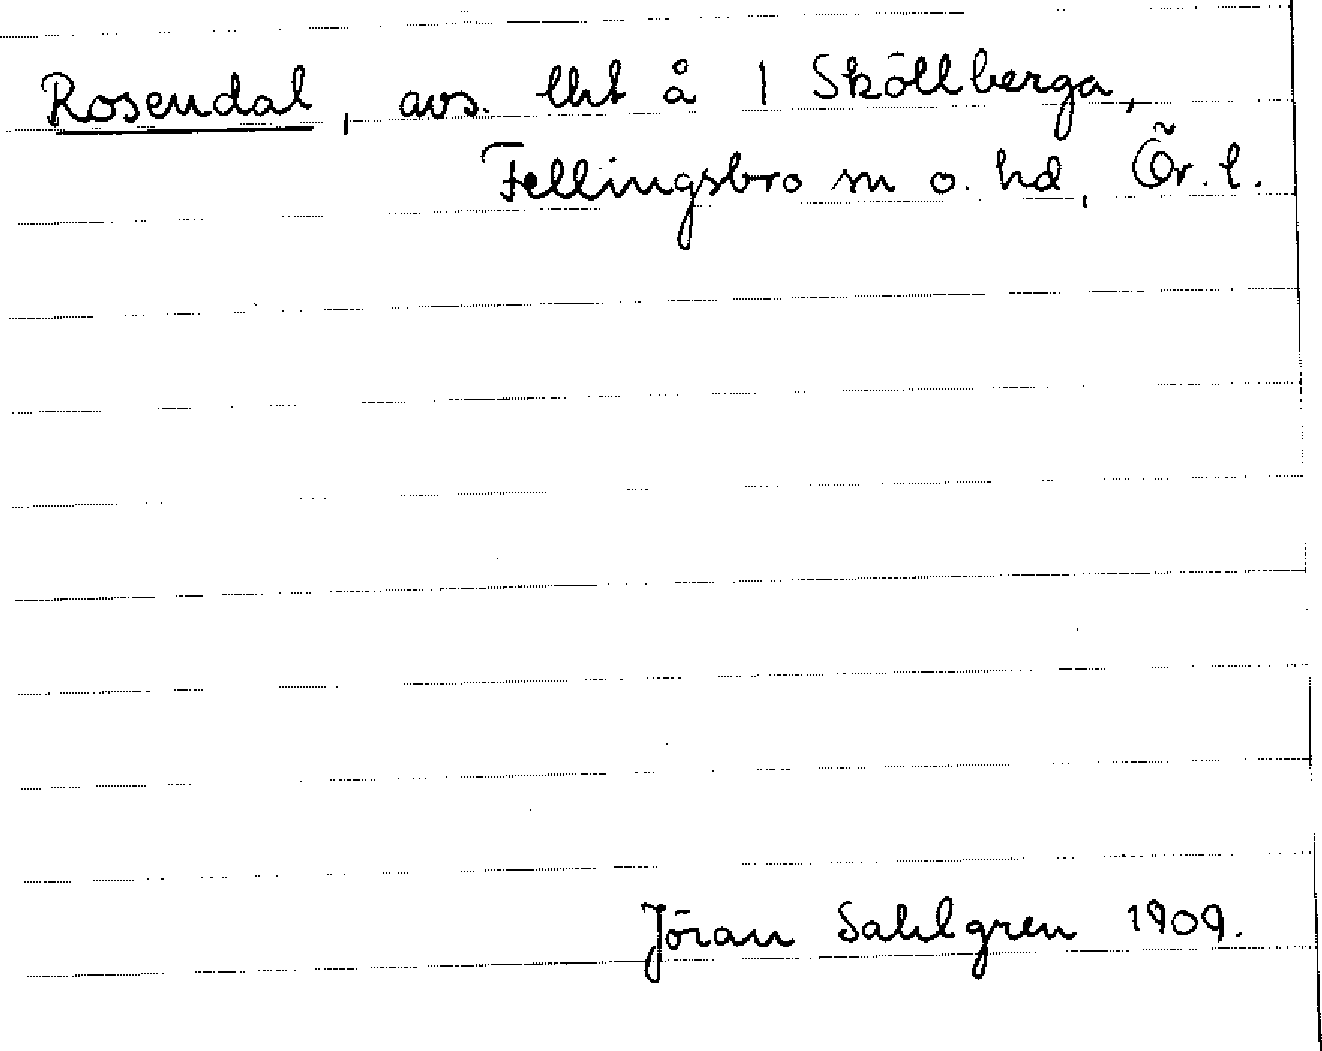 Rosendal, avs. lht å 1 Sköllberga,
Fellingsbro sn o. hd, Ör. l.
Jöran Sahlgren 1909.